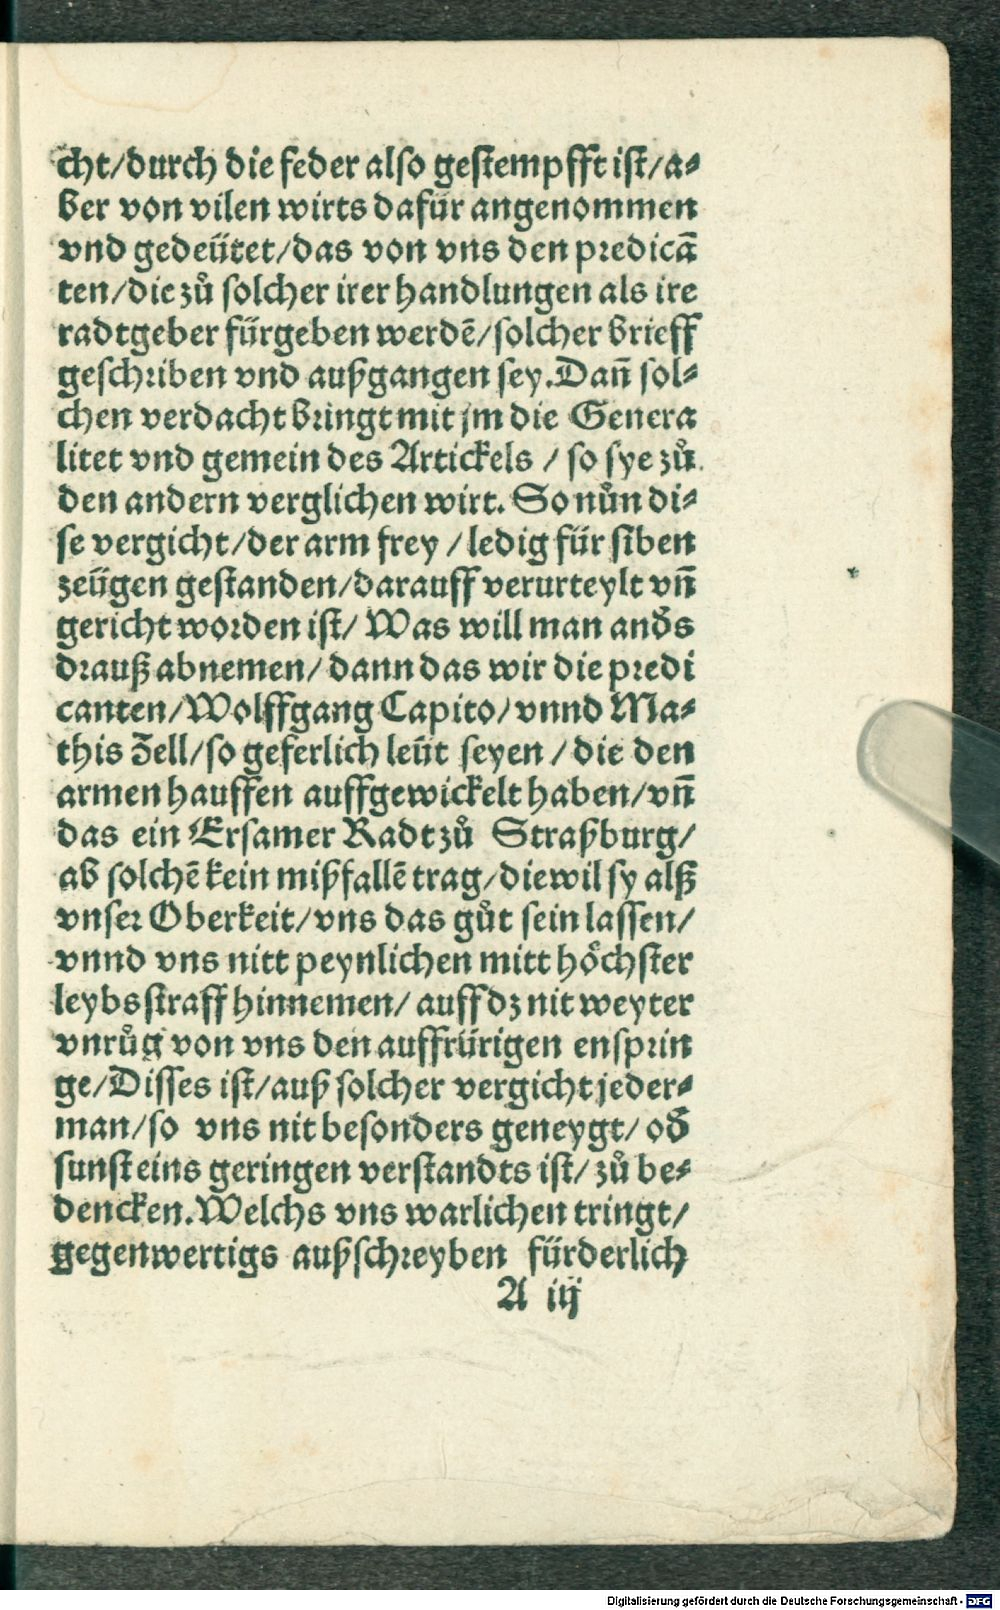 cht/durch die feder also gestempfft ist/a⸗
ber von vilen wirts dafür angenommen
vnd gedeütet/das von vns den predicā
ten/die zů solcher irer handlungen als ire
radtgeber fürgeben werdē/solcher brieff
geschriben vnd außgangen sey. Dañ sol⸗
chen verdacht bringt mit jm die Genera
litet vnd gemein des Artickels / so sye zů
den andern verglichen wirt. So nůn di⸗
se vergicht/der arm frey / ledig für siben
zeügen gestanden/darauff verurteylt vñ
gericht worden ist/ Was will man anðs
drauß abnemen/ dann das wir die predi
canten/Wolffgang Capito/ vnnd Ma⸗
this Zell/so geferlich leüt seyen / die den
armen hauffen auffgewickelt haben/vñ
das ein Ersamer Radt zů Straßburg/
ab solchē kein mißfallē trag/diewil sy alß
vnser Oberkeit/vns das gůt sein lassen/
vnnd vns nitt peynlichen mitt höchster
leybs straff hinnemen/ auff dz nit weyter
vnrůg von vns den auffrürigen ensprin
ge/Disses ist/auß solcher vergicht jeder⸗
man/so vns nit besonders geneygt/ oð
sunst eins geringen verstandts ist/ zů be⸗
dencken. Welchs vns warlichen tringt/
gegenwertigs außschreyben fürderlich
A iij
Digitalisierung gefördert durch die Deutsche Forschungsgemeinschaft - DFG